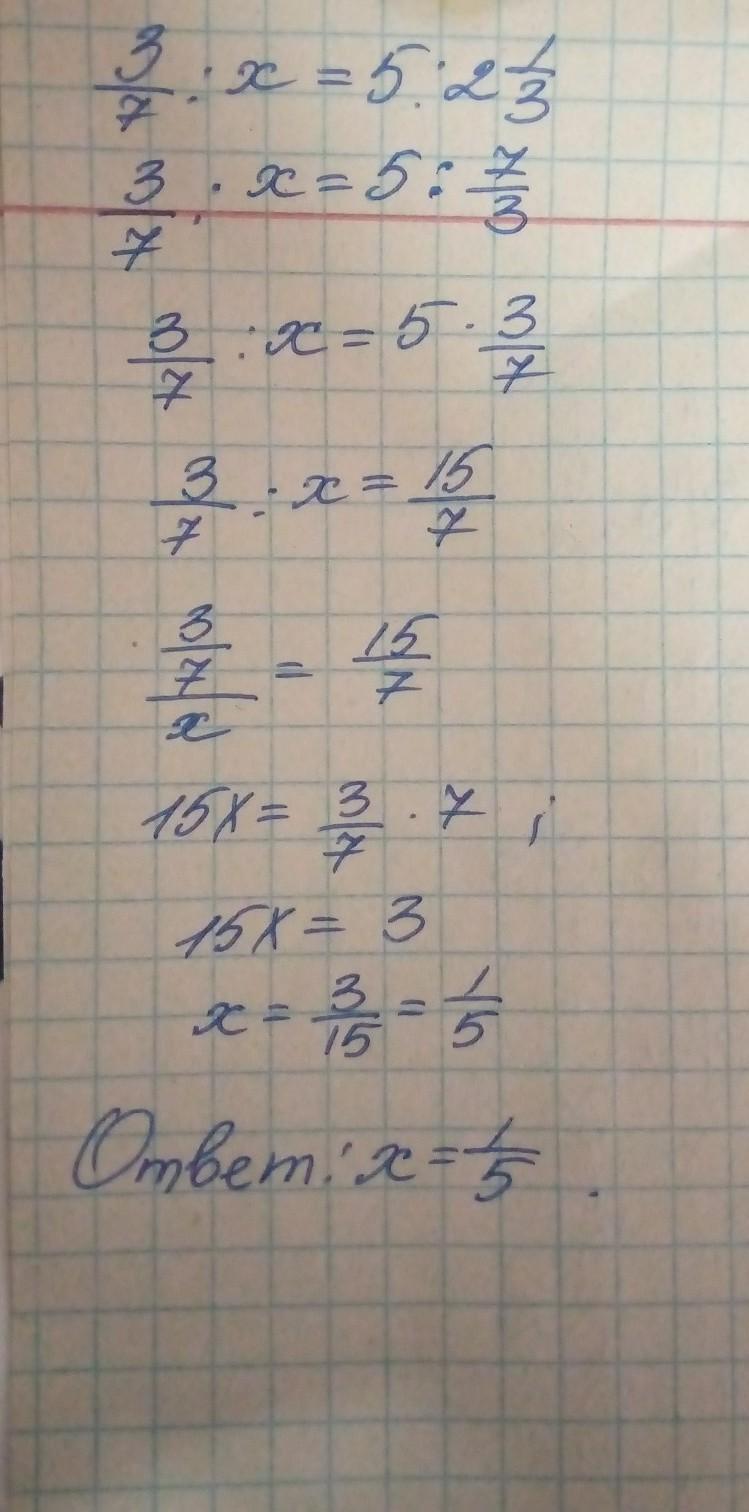 3/7 : x = 5 : 2 1/3
3/7 : x = 5 : 7/3
3/7 : x = 5 · 3/7
3/7 : x = 15/7
(3/7)/x = 15/7
15x = 3/7 · 7 ;
15x = 3
x = 3/15 = 1/5
Ответ: x = 1/5 .